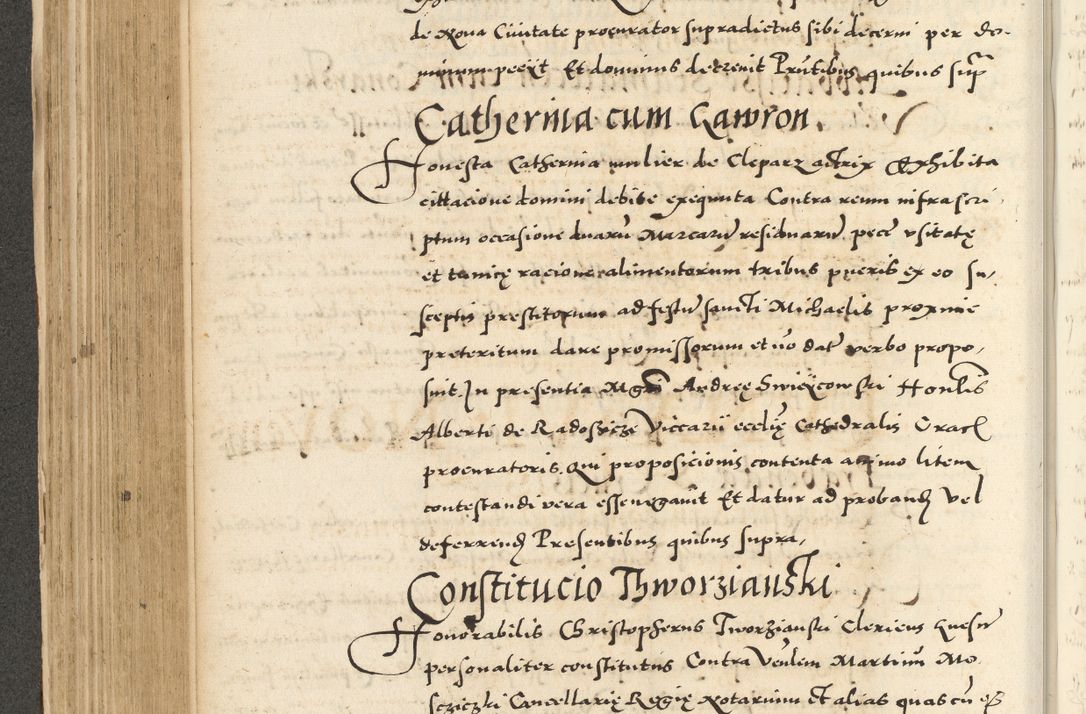 de Nova Ciuitate procurator supradictus sibi decerni per do-
minum peciit Et dominus decreuit Prutibus quibus sup
Catherina cum Gawron
Honesta Catherina mulier de Clepars actrix Exhibita
cittacione domini debite exequuta Contra reum infrascri
ptum occasione duaru Marcaru residuaru pece vsitate
et tunice racione alimentorum tribus pueris ex eo su-
sceptis prestitorum ad festu sancti Michaelis proxime
preteritum dare promissorum et no dat verbo propo-
suit. In presentia Mgri Andree Swiexcowski Honlis
Alberti de Radoszicze Viccarii ecclie Cathedralis Crac
procuratoris. Qui proposicionis contenta animo litem
contestandi vera esse negauit Et datur ad proband vel
deferrend Presentibus quibus supra,
Constitucio Thworzianski
Honorabilis Christopherus Tworzianski Clericus Gnesn
personaliter constitutus Contra Venlem Martinu Mo
scziczki Cancellarie Regie Notarium Et alias quascu ex